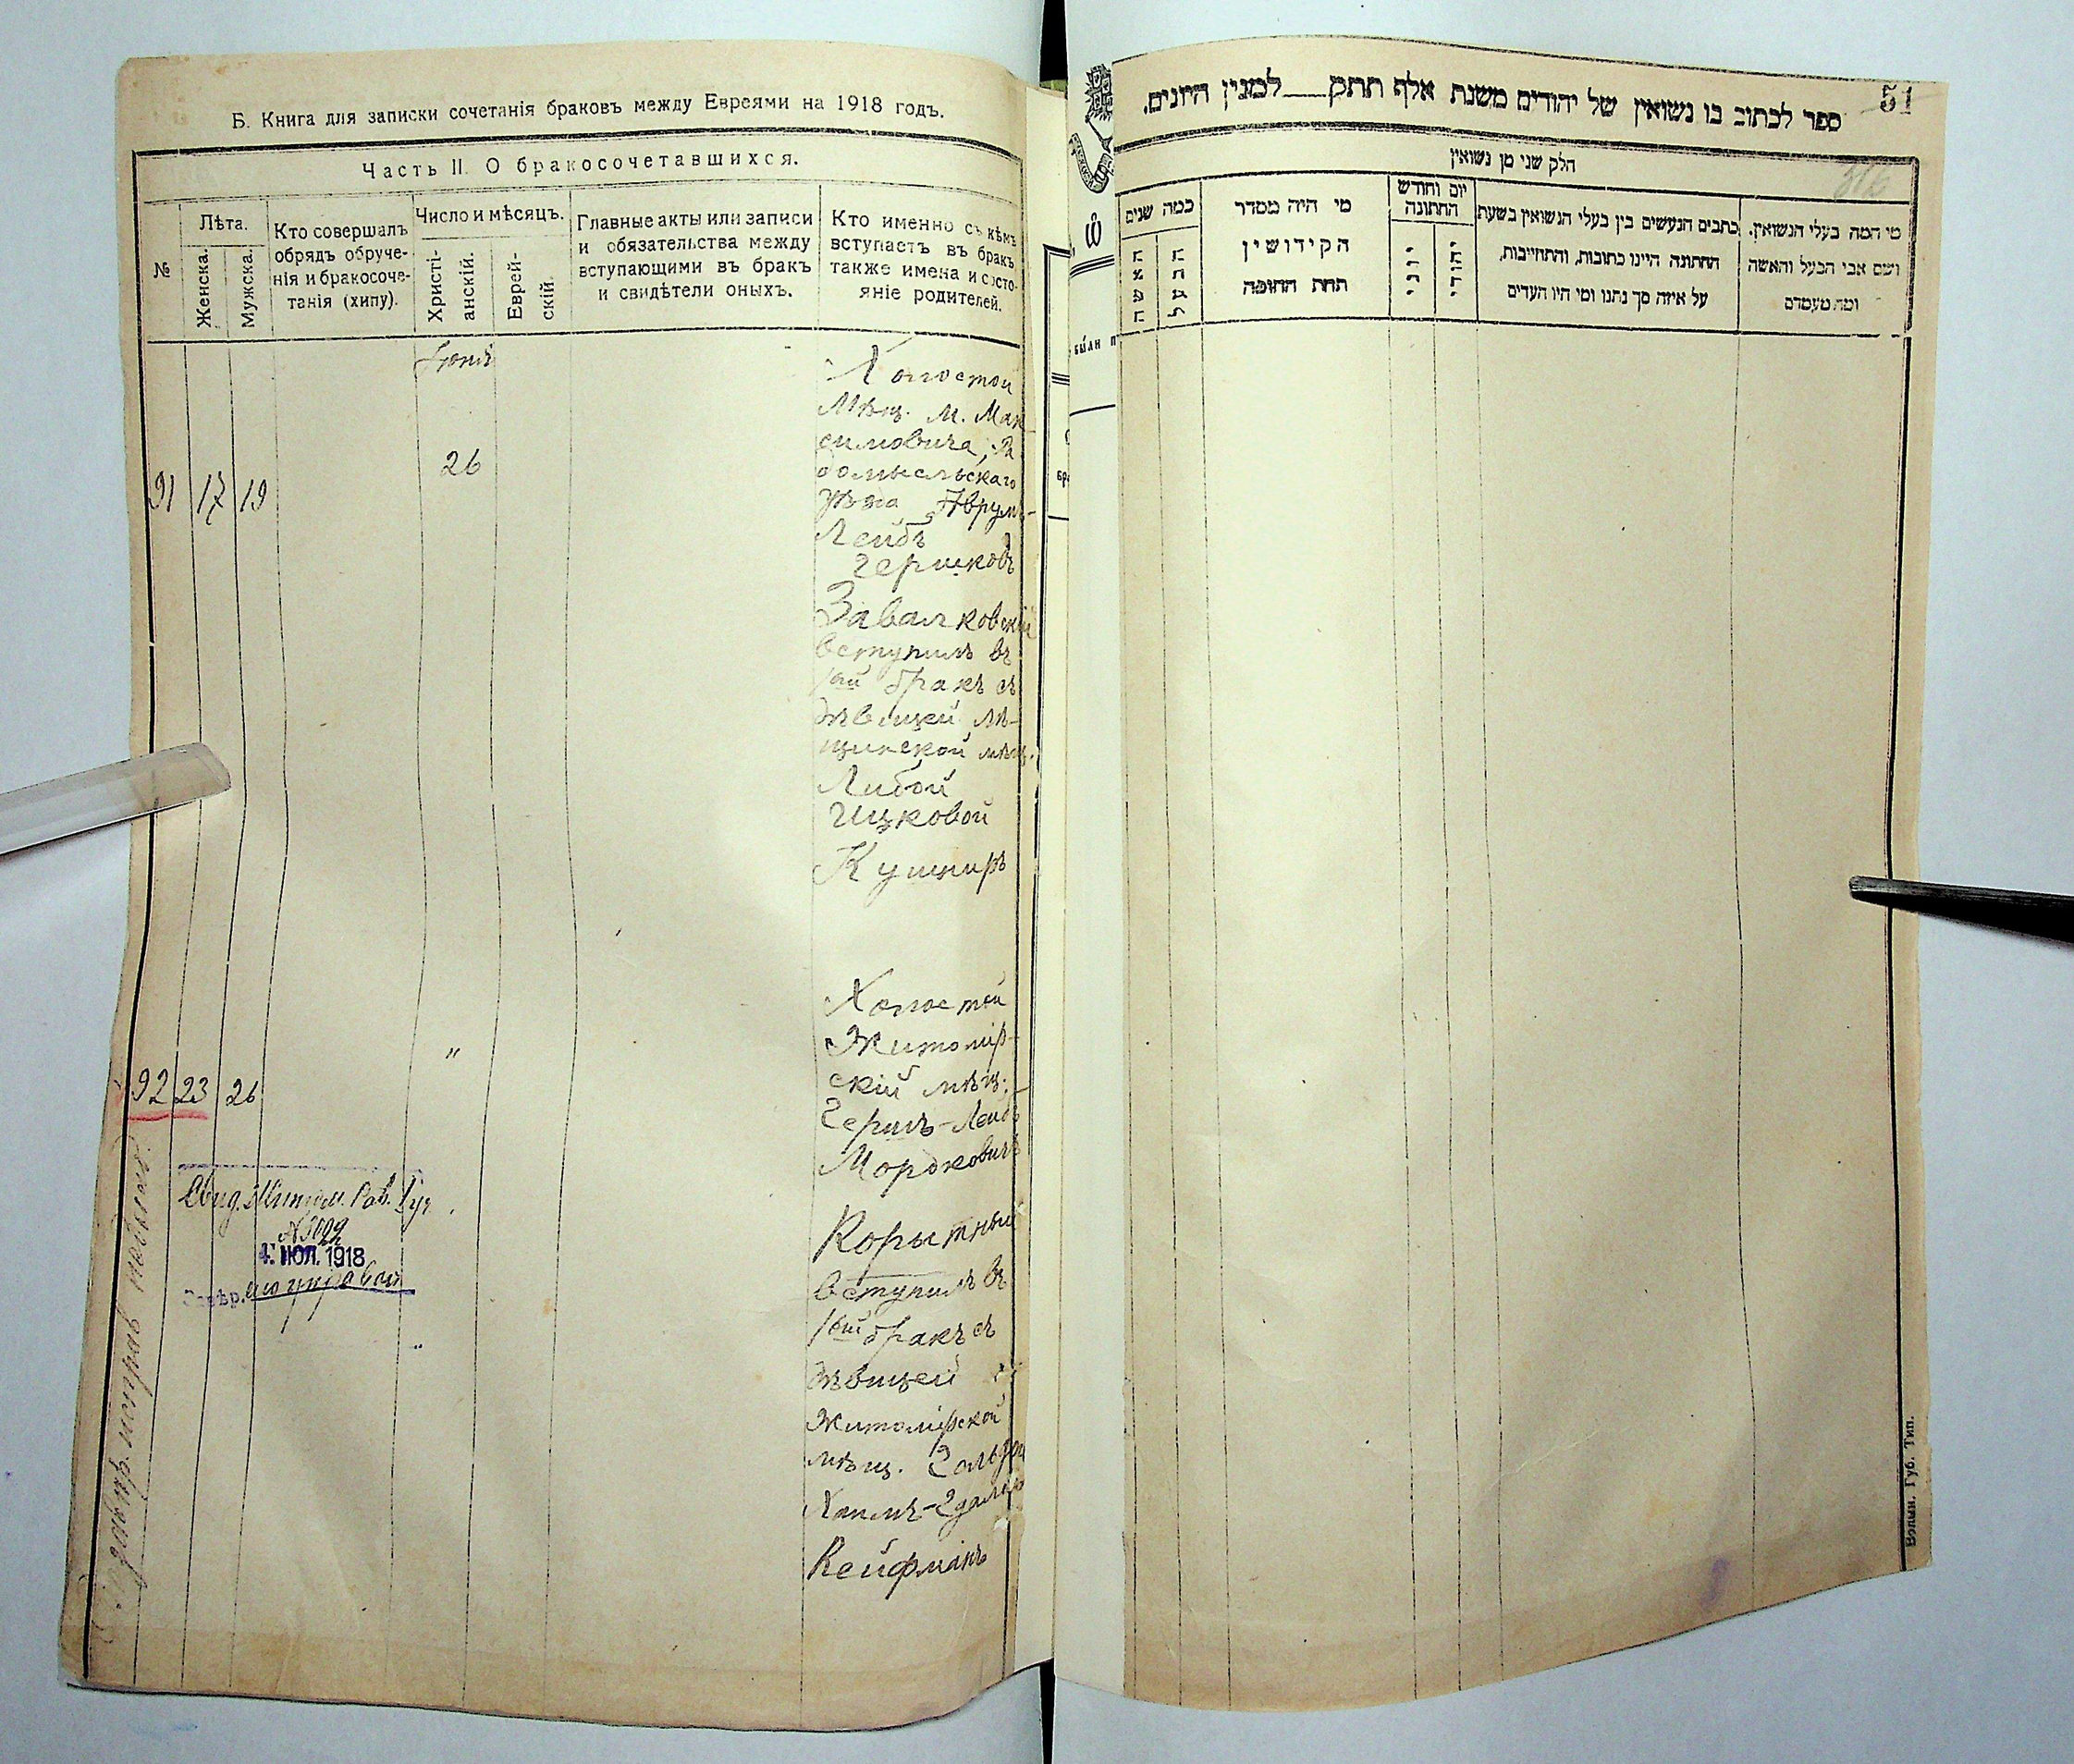 Б. Книга для записки сочетанія браковъ между Евреями на 1918 годъ.
Часть II. О бракосочетавшихся.
№
Лѣта.
Женска.
Мужска.
Кто совершалъ
обрядъ обруче-
нія и бракосоче-
танія (хипу).
Число и мѣсяцъ.
Христі-
анскій.
Еврей-
скій.
Главные акты или записи
и обязательства между
вступающими въ бракъ
и свидѣтели оныхъ.
Кто именно съ кѣмъ
вступаетъ въ бракъ,
также имена и состо-
яніе родителей.
91 17 19
26
Холостой
Мѣщ. м. Мак-
симовича, Ра
домысльскаго
уѣзда Аврумъ-
Лейбъ
Гершковъ
Завалковскій
вступилъ въ
1ый бракъ съ
дѣвицей
мѣщ.
Либой
Ицковой
Кушниръ
92 23 26
"
Холостой
Житомір-
скій мѣщ.
Гершъ-Лейбъ
Мордковичъ
Корытный
вступилъ въ
1ый бракъ съ
дѣвицей
Житомірской
мѣщ. Гольдой
Хаимъ-
Кейфманъ
1918
ספר לכתוב בו נשואין של יהודים משנת אלף תתק___למנין היונים.
51
חלק שני מן נשואין
כמה שנים
האשה
הבעל
מי היה מסדר
הקידושין
תחת החופה
יום וחודש
החתונה
יוני
יהודי
כתבים הנעשים בין בעלי הנשואין בשעת
החתונה היינו כתובות, והתחייבות,
על איזה סך נתנו ומי היו העדים
מי המה בעלי הנשואין,
ושם אבי הבעל והאשה
ומה מעמדם
Волын. Губ. Тип.